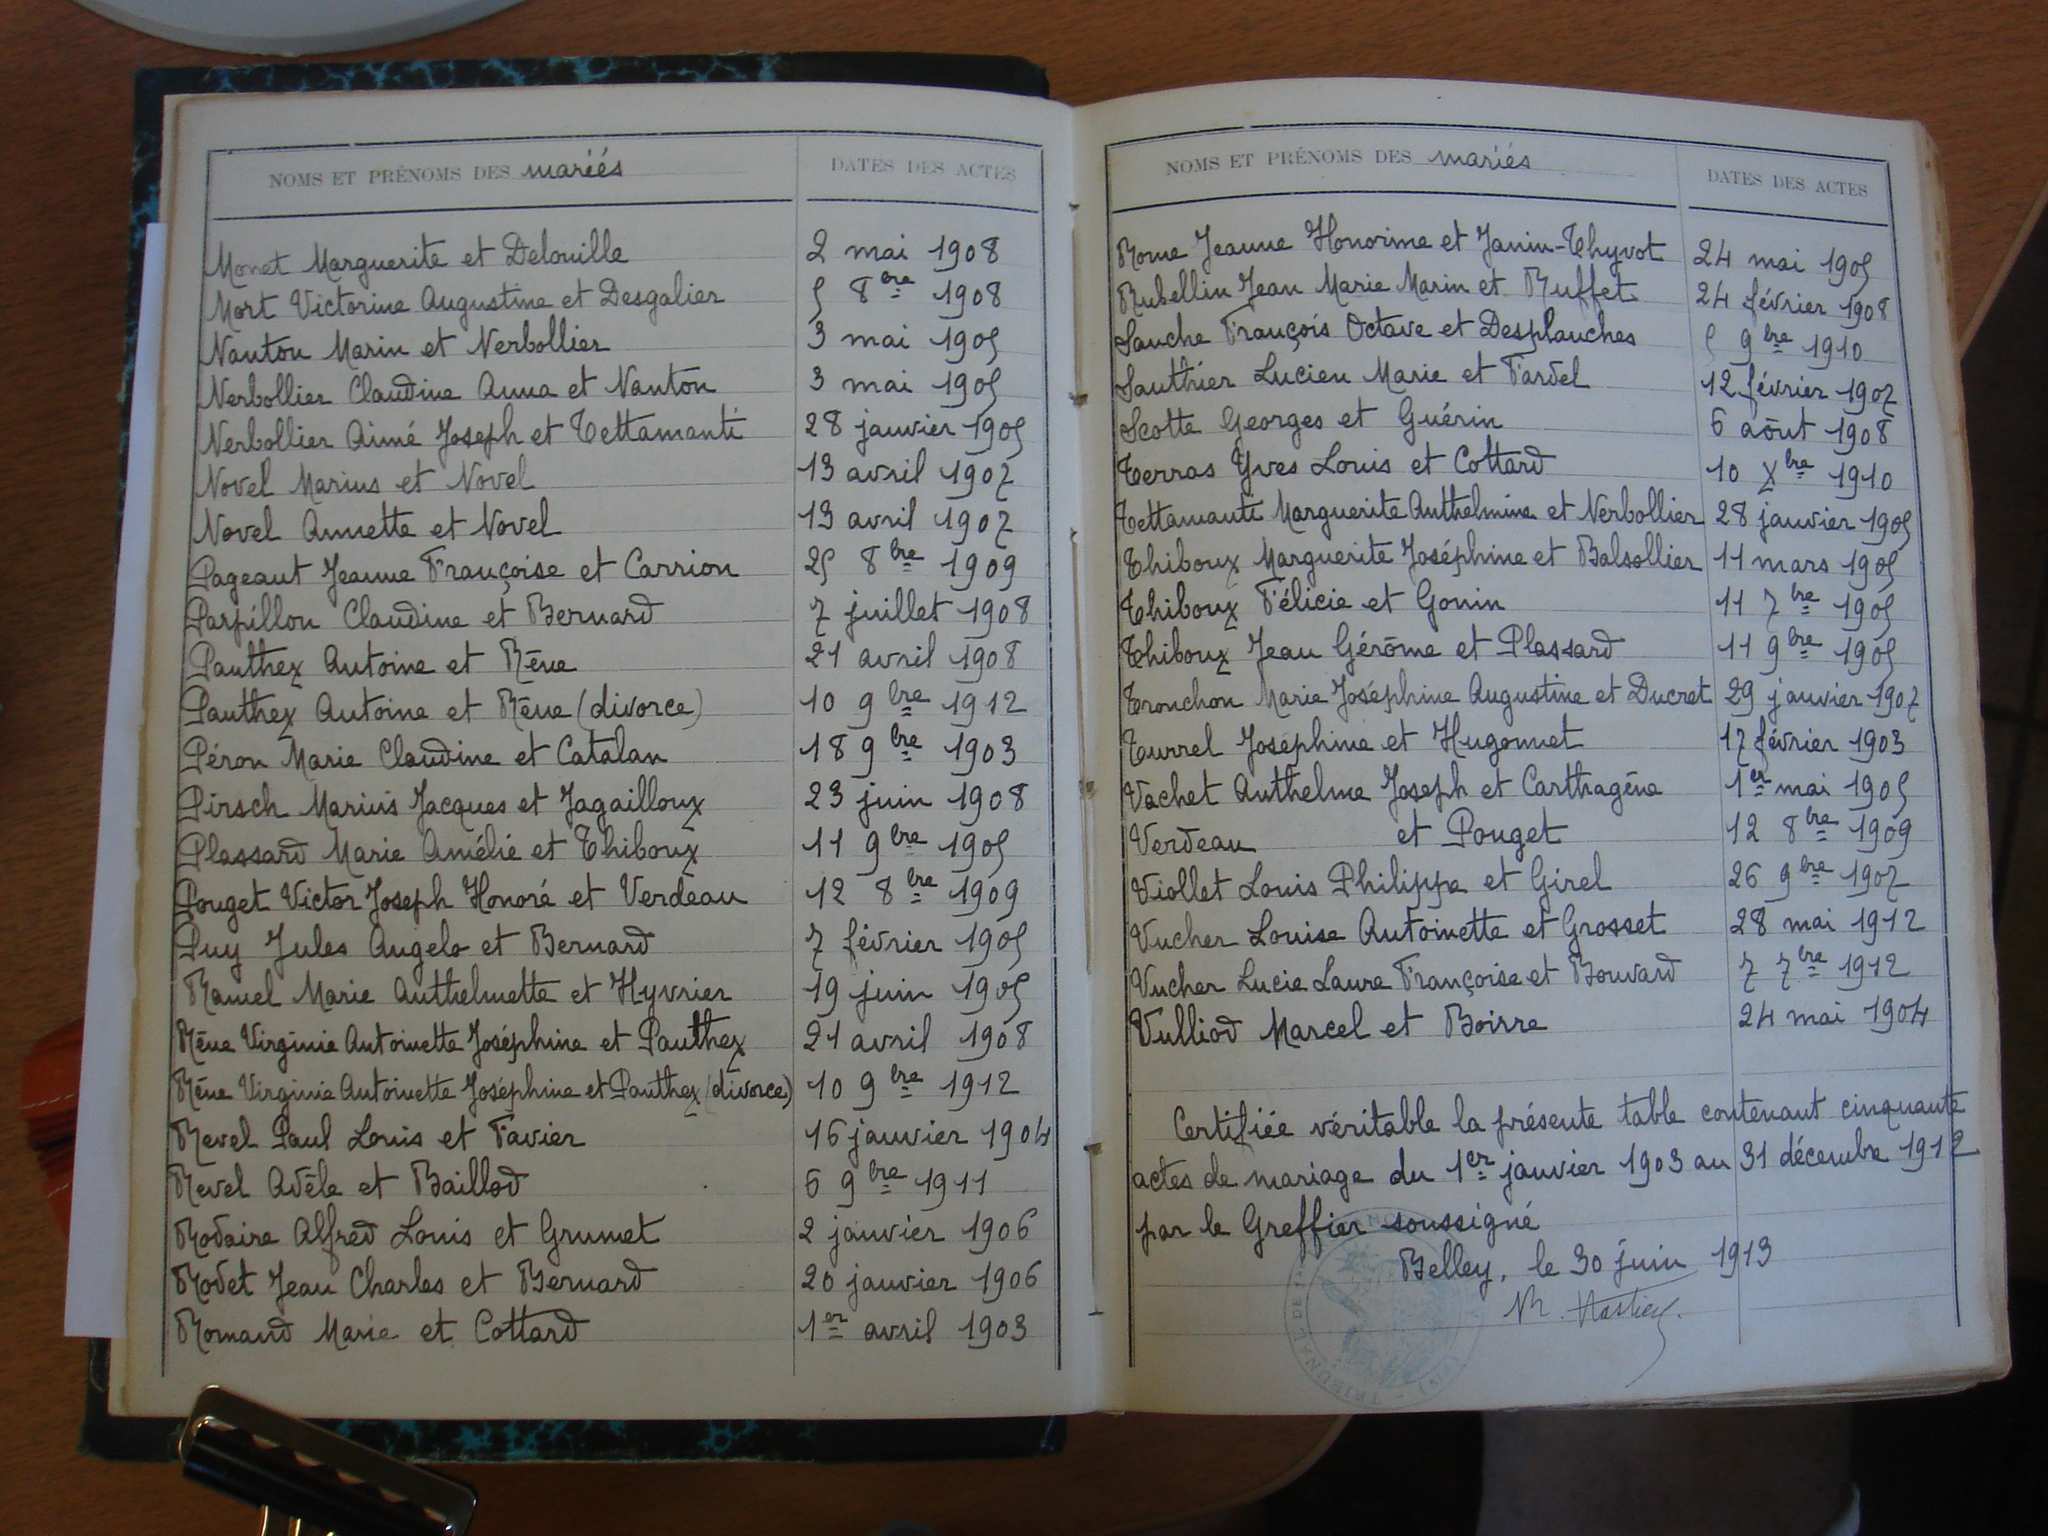 NOMS ET PRÉNOMS DES mariés DATES DES ACTES
Monet Marguerite et Delouille 2 mai 1908
Mort Victorine Augustine et Desgalier 5 8bre 1908
Nanton Marin et Nerbollier 3 mai 1905
Nerbollier Claudine Anna et Nanton 3 mai 1905
Nerbollier Aimé Joseph et Tettamanti 28 janvier 1905
Novel Marius et Novel 13 avril 1907
Novel Annette et Novel 13 avril 1907
Pageaut Jeanne Françoise et Carrion 25 8bre 1909
Parpillon Claudine et Bernard 7 juillet 1908
Panthex Antoine et Rêne 21 avril 1908
Panthex Antoine et Rêne (divorce) 10 9bre 1912
Péron Marie Claudine et Catalan 18 9bre 1903
Pirsch Marius Jacques et Jagailloux 23 juin 1908
Plassard Marie Amélie et Thiboux 11 9bre 1905
Pouget Victor Joseph Honoré et Verdeau 12 8bre 1909
Puy Jules Angelo et Bernard 7 février 1905
Ramel Marie Anthelmette et Hyvrier 19 juin 1905
Rêne Virginie Antoinette Joséphine et Panthex 21 avril 1908
Rêne Virginie Antoinette Joséphine et Panthex (divorce) 10 9bre 1912
Revel Paul Louis et Favier 16 janvier 1904
Revel Adèle et Baillod 6 9bre 1911
Rodaire Alfred Louis et Grumet 2 janvier 1906
Rodet Jean Charles et Bernard 20 janvier 1906
Romand Marie et Cottard 1er avril 1903
NOMS ET PRÉNOMS DES mariés DATES DES ACTES
Rome Jeanne Honorine et Janin-Thyvot 24 mai 1905
Rubellin Jean Marie Marin et Ruffet 24 février 1908
Sanche François Octave et Desplanches 5 9bre 1910
Santhier Lucien Marie et Fardel 12 février 1907
Scotte Georges et Guérin 6 aôut 1908
Terras Yves Louis et Cottard 10 Xbre 1910
Tettamanti Marguerite Anthelmine et Nerbollier 28 janvier 1905
Thiboux Marguerite Joséphine et Balsollier 11 mars 1905
Thiboux Félicie et Gonin 11 7bre 1905
Thiboux Jean Gérôme et Plassard 11 9bre 1905
Tronchon Marie Joséphine Augustine et Ducret 29 janvier 1907
Turrel Joséphine et Hugonnet 17 février 1903
Vachet Anthelme Joseph et Carthagène 1er mai 1905
Verdeau et Pouget 12 8bre 1909
Viollet Louis Philippe et Girel 26 9bre 1907
Vucher Louise Antoinette et Grosset 28 mai 1912
Vucher Lucie Laure Françoise et Bouvard 7 7bre 1912
Vulliod Marcel et Boirre 24 mai 1904
Certifiée véritable la présente table contenant cinquante
actes de mariage du 1er janvier 1903 au 31 décembre 1912
par le Greffier soussigné
Belley, le 30 juin 1913